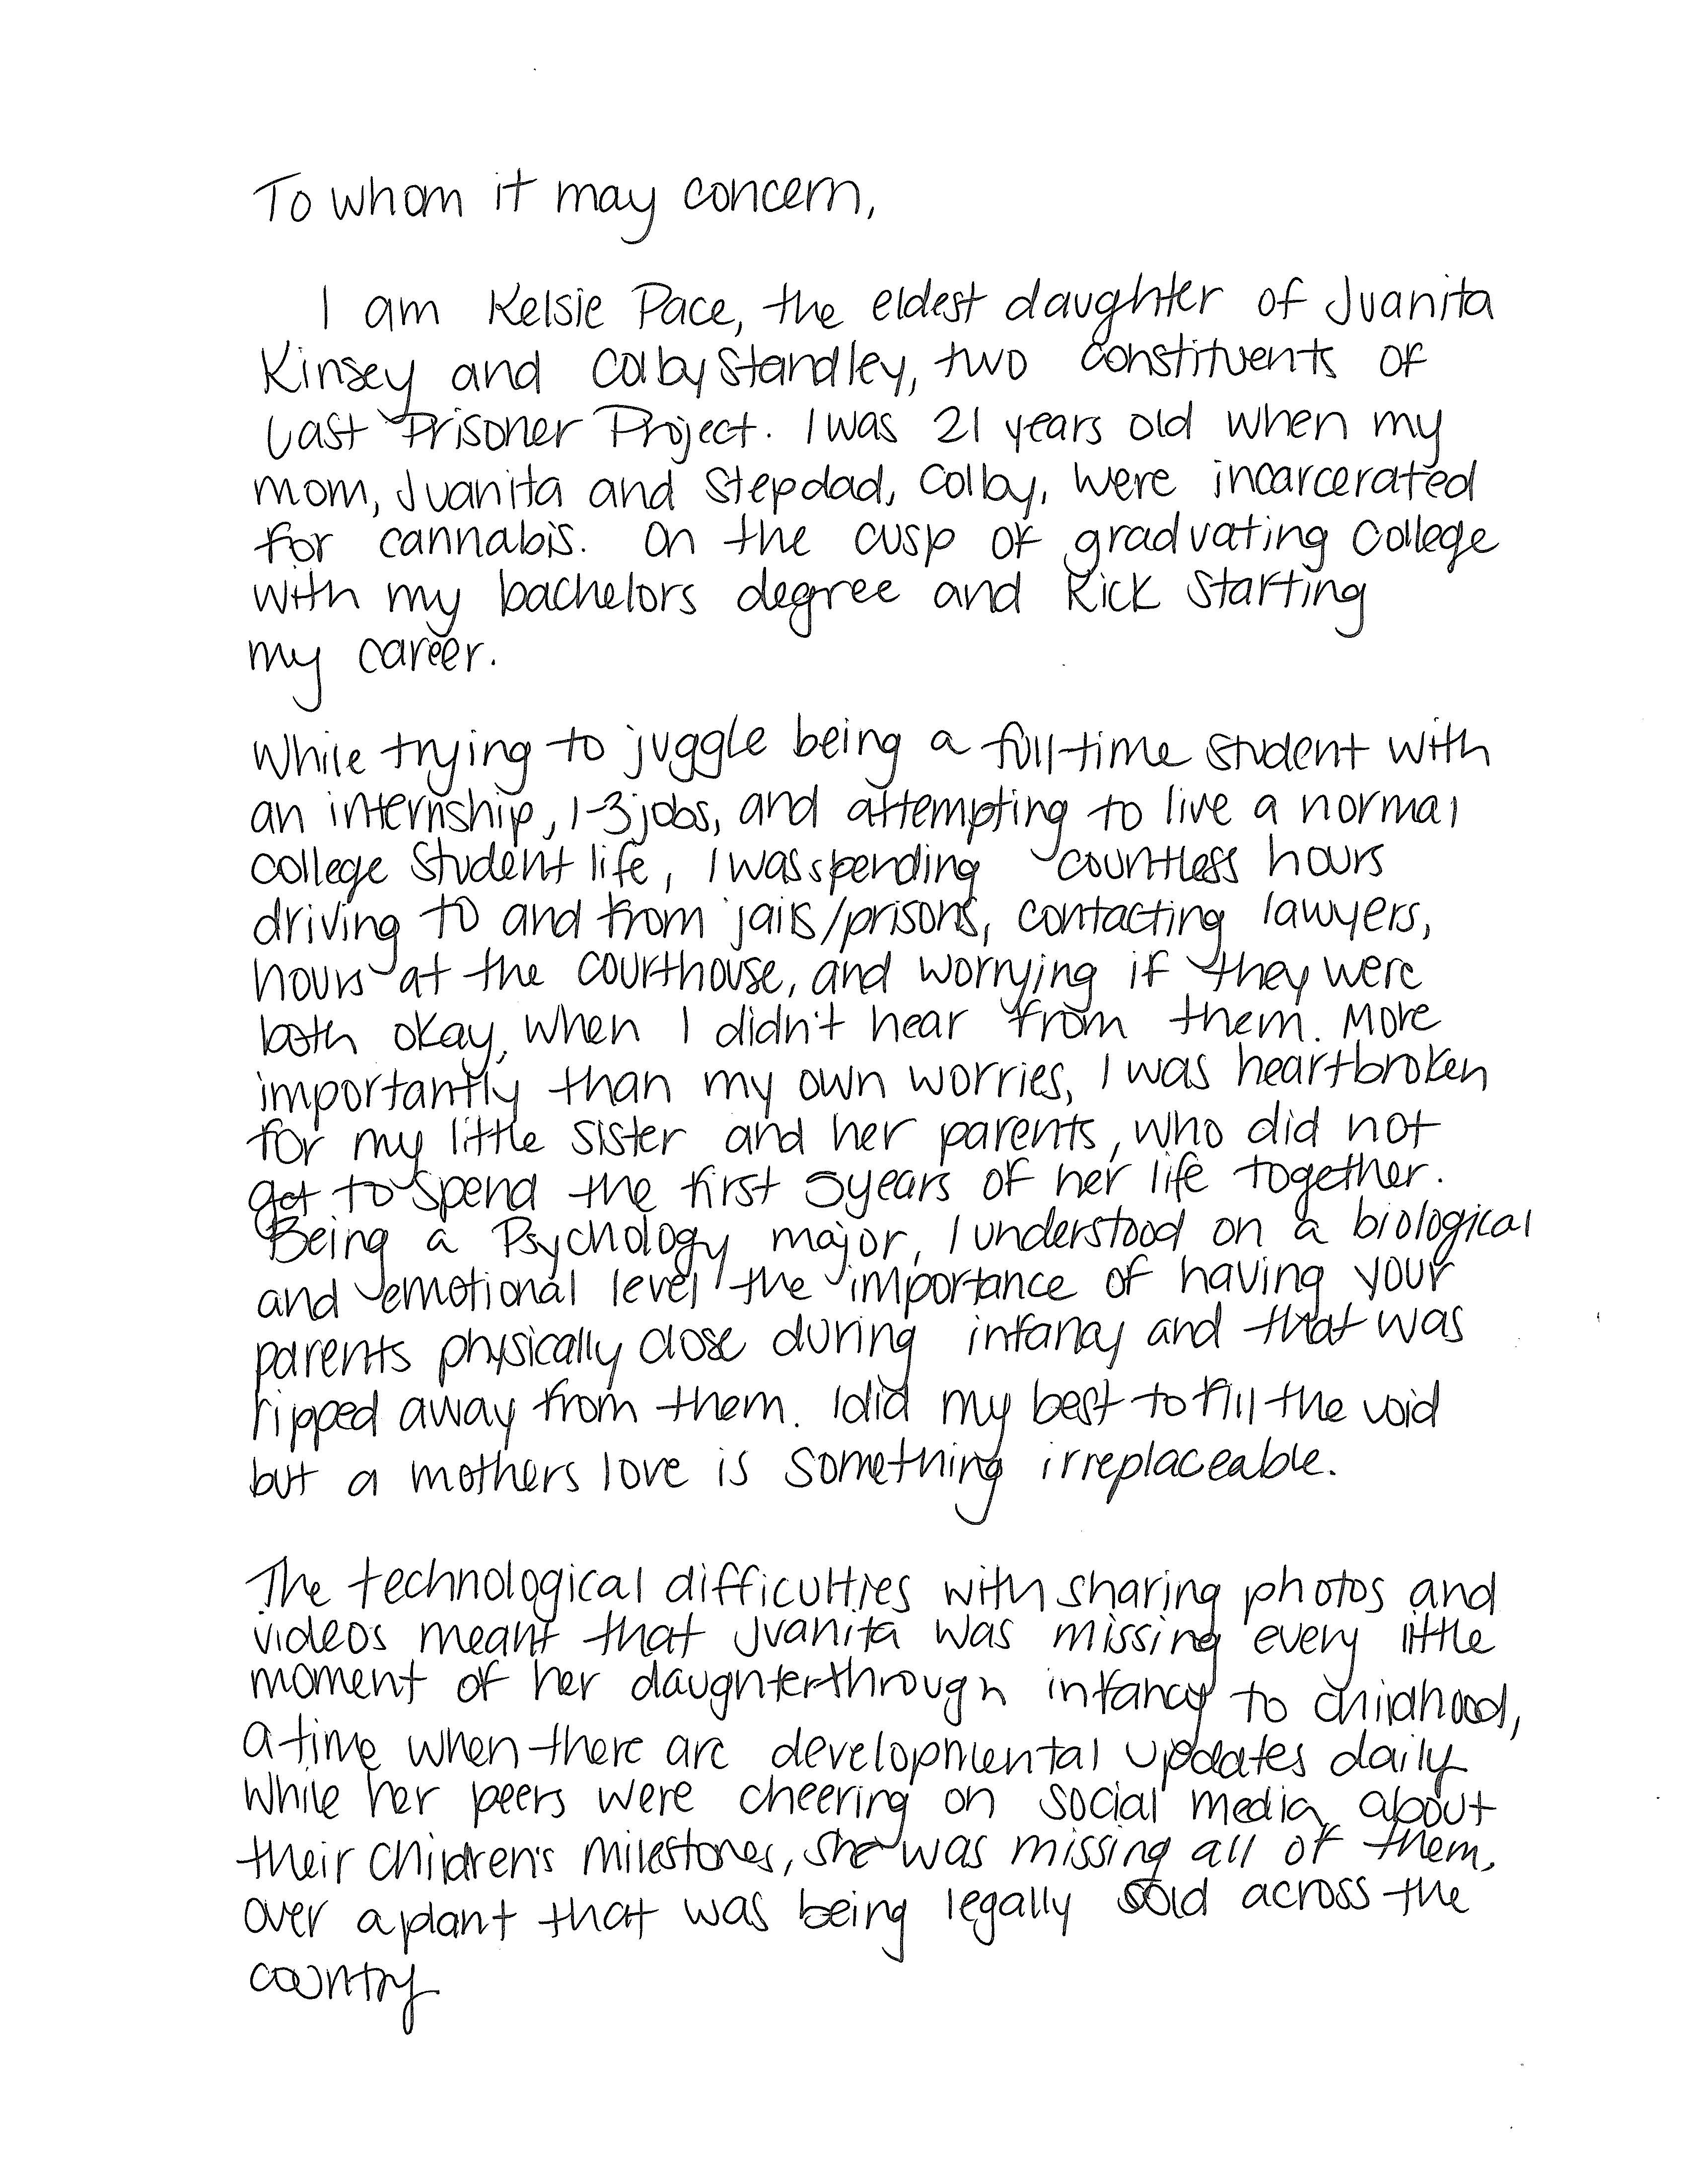 To whom it may concern,
I am Kelsie Pace, the eldest daughter of Juanita
Kinsey and Colby Standley, two constituents of
Last Prisoner Project. I was 21 years old when my
mom, Juanita and Stepdad, Colby, were incarcerated
for cannabis. On the cusp of graduating College
with my bachelors degree and Kick Starting
my career.
While trying to juggle being a full-time student with
an internship, 1-3 jobs, and attempting to live a normal
college student life, I was spending countless hours
driving to and from jails/prisons, contacting lawyers,
hours at the courthouse, and worrying if they were
both okay, when I didn't hear from them. More
importantly than my own worries, I was heartbroken
for my little sister and her parents, who did not
get to spend the first 5 years of her life together.
Being a Psychology major, I understood on a biological
and emotional level the importance of having your
parents physically close during infancy and that was
ripped away from them. I did my best to fill the void
but a mothers love is something irreplaceable.
The technological difficulties with sharing photos and
videos meant that Juanita was missing every little
moment of her daughter through infancy to childhood,
a time when there are developmental updates daily
While her peers were cheering on social media about
their children's milestones, she was missing all of them,
over a plant that was being legally sold across the
country